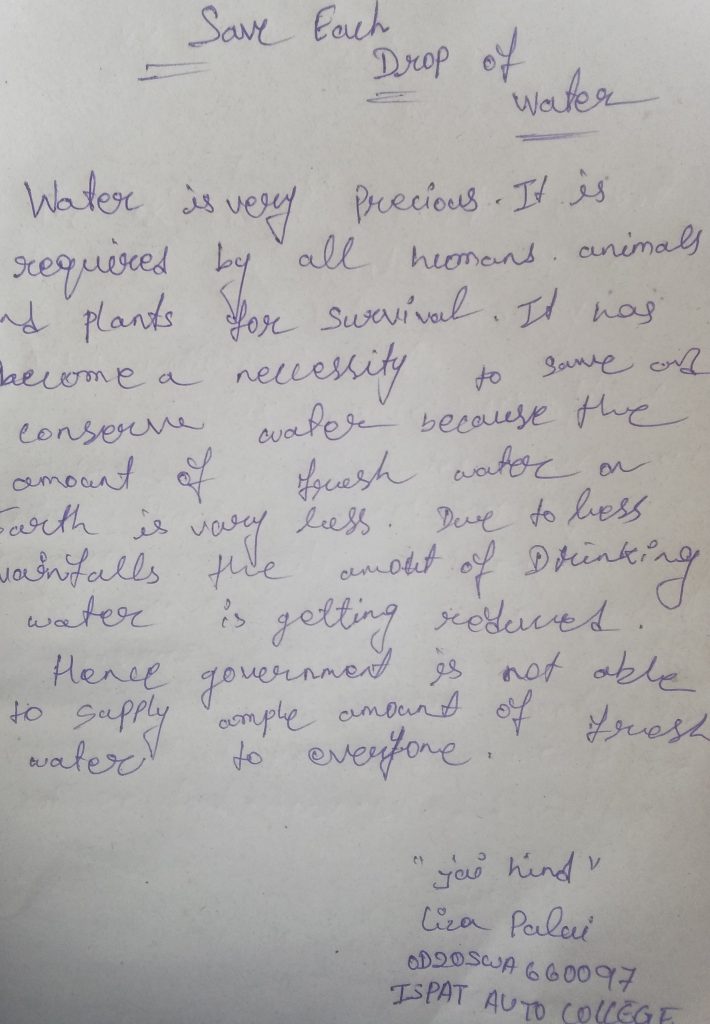 Save Each
Drop of
Water
Water is very precious. It is
required by all humans. animals
nd plants for survival. It has
become a necessity to save and
conserve water because the
amount of fresh water on
Earth is vary less. Due to less
rainfalls the amout of Drinking
water is getting reduced.
Hence government is not able
to supply ample amount of fresh
water to everyone.
"jai hind"
Liza Palai
OD20SWA660097
ISPAT AUTO COLLEGE